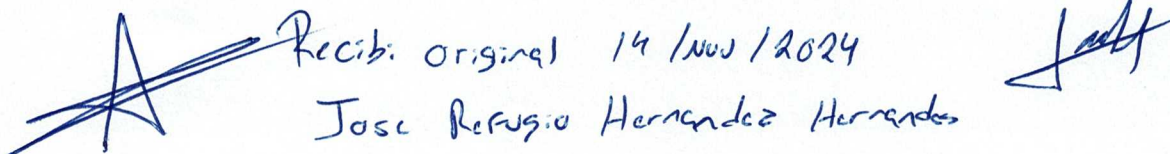 Recibi original 14/Nov/2024
Jose Refugio Hernandez Hernandes